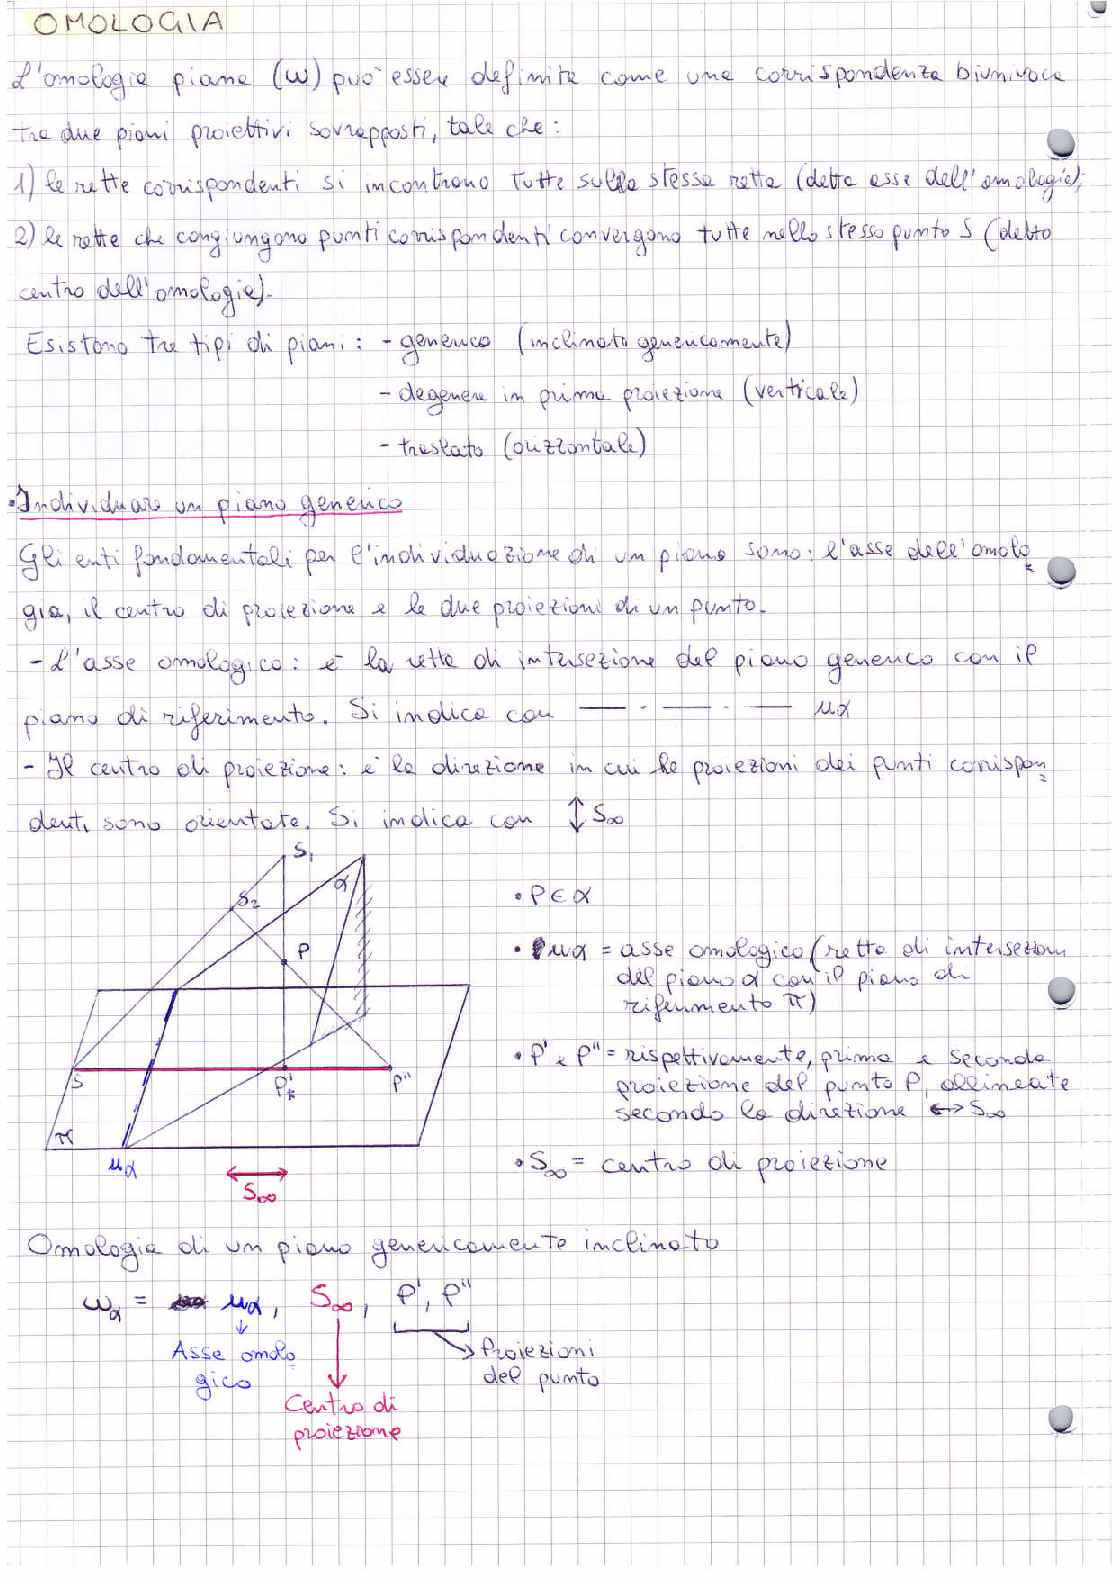 OMOLOGIA
L'omologia piana (ω) può essere definita come una corrispondenza biunivoca
tra due piani proiettivi sovrapposti, tale che:
1) le rette corrispondenti si incontrano tutte sulla stessa retta (detta asse dell'omologia);
2) le rette che congiungono punti corrispondenti convergono tutte nello stesso punto S (detto
centro dell'omologia).
Esistono tre tipi di piani: - generico (inclinato genericamente)
- degenere in prima proiezione (verticale)
- traslato (orizzontale)
• Individuare un piano generico
Gli enti fondamentali per l'individuazione di un piano sono: l'asse dell'omolo
gia, il centro di proiezione e le due proiezioni di un punto.
- L'asse omologico: è la retta di intersezione del piano generico con il
piano di riferimento. Si indica con — - — - — uα
- Il centro di proiezione: è la direzione in cui le proiezioni dei punti corrispon
denti sono orientate. Si indica con ↕ S∞
S₁
α
S₂
P
• P ∈ α
• uα = asse omologico (retta di intersezione
del piano α con il piano di
riferimento π)
• P' e P" = rispettivamente, prima e seconda
proiezione del punto P, allineate
secondo la direzione ↔ S∞
S
P'
P"
π
uα
S∞
• S∞ = centro di proiezione
Omologia di un piano genericamente inclinato
ωα = uα, S∞, P', P"
Asse omolo
gico
Centro di
proiezione
Proiezioni
del punto